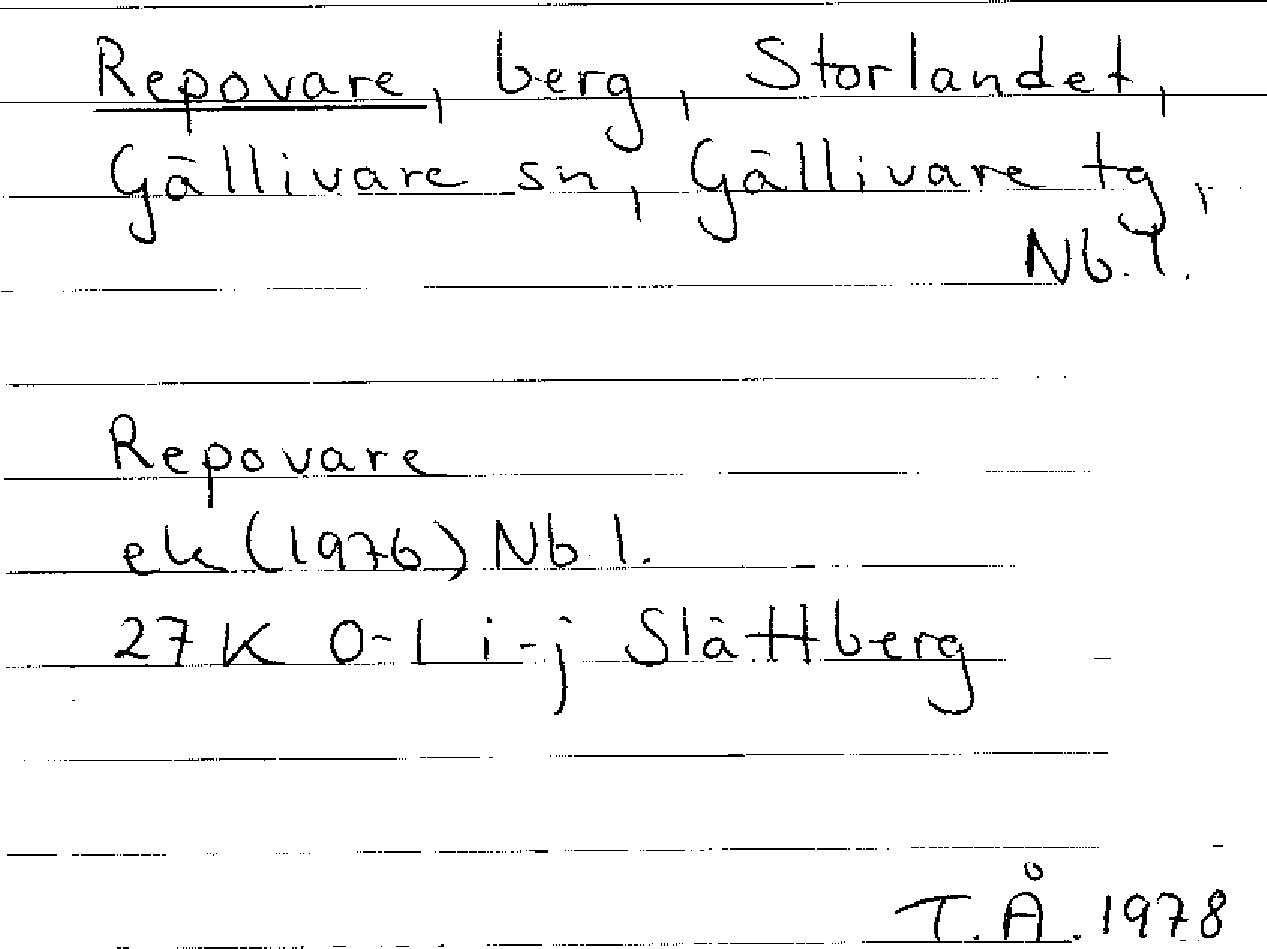 Repovare, berg, Storlandet,
Gällivare sn, Gällivare tg,
Nb. l.
Repovare
ek (1976) Nb l.
27 K 0-1 i-j Slättberg
T.Å. 1978